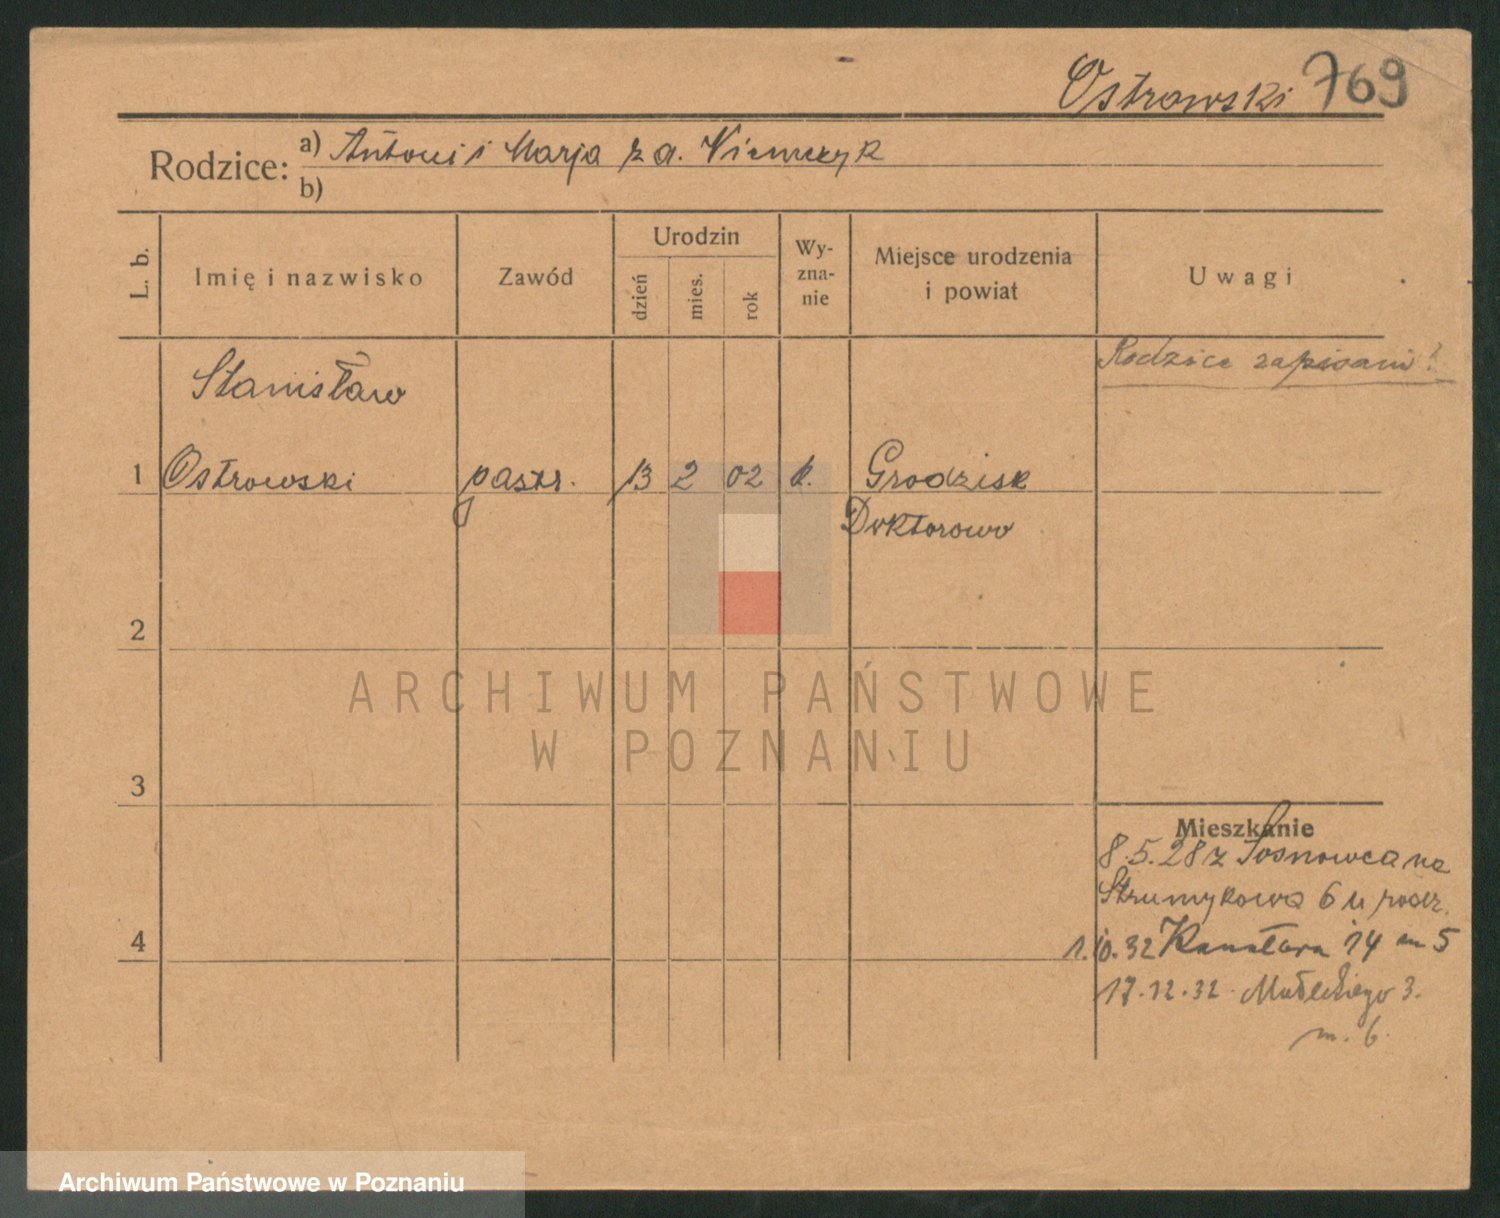 Ostrowski 769
Rodzice: a) Antoni i Marja z d. Niemczyk
b)
L. b.
Imię i nazwisko
Zawód
Urodzin
dzień
mies.
rok
Wy-
zna-
nie
Miejsce urodzenia
i powiat
Uwagi
Rodzice zapisani!
Stanisław
1 Ostrowski pastr. 13 2 02 k. Grodzisk
Doktorowo
2
ARCHIWUM PAŃSTWOWE
W POZNANIU
3
Mieszkanie
8.5.28 z Sosnowca na
Strumykowa 6 u rodz.
4
1.10.32 Kanałowa 14 m 5
17.12.32. Małeckiego 3.
m. 6.
Archiwum Państwowe w Poznaniu